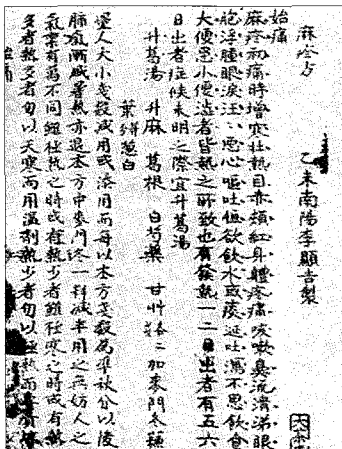 麻疹方
乙未南陽李顯吉製
始痛
麻疹初痛時增寒壮熱目赤頰紅身體疼痛咳嗽鼻流清涕眼
胞浮腫眼淚汪〻惡心嘔吐但欲飲水或痰涎吐瀉不思飲食
大便 小便澁者皆熱之所致也 熱一二日出者有五六
日出者症候未明之際宜升葛湯
升葛湯 升麻 葛根 白芍藥 甘艸 加麥門冬 蘇
葉 葱白
人大小 或用或 用而每以本方 為準秋分以後
肺 漸減 熱亦退本方中麥門冬一種減半用之無妨人之
氣稟有萬不同雖壮熱之時或有熱少者雖極寒之時或有熱
多者熱多者勿以天寒而用溫剂熱少者勿以極熱而